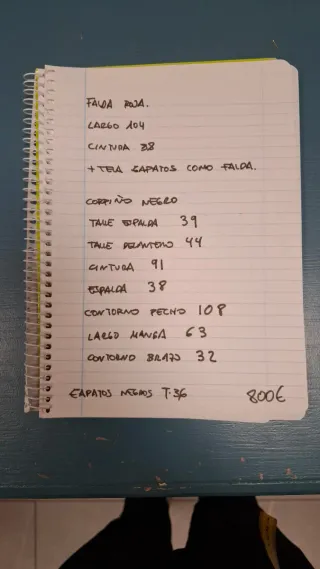 FALDA ROJA.
LARGO 104
CINTURA 88
+ TELA ZAPATOS COMO FALDA.
CORPIÑO NEGRO
TALLE ESPALDA 39
TALLE DELANTERO 44
CINTURA 91
ESPALDA 38
CONTORNO PECHO 108
LARGO MANGA 63
CONTORNO BRAZO 32
ZAPATOS NEGROS T.36 800€